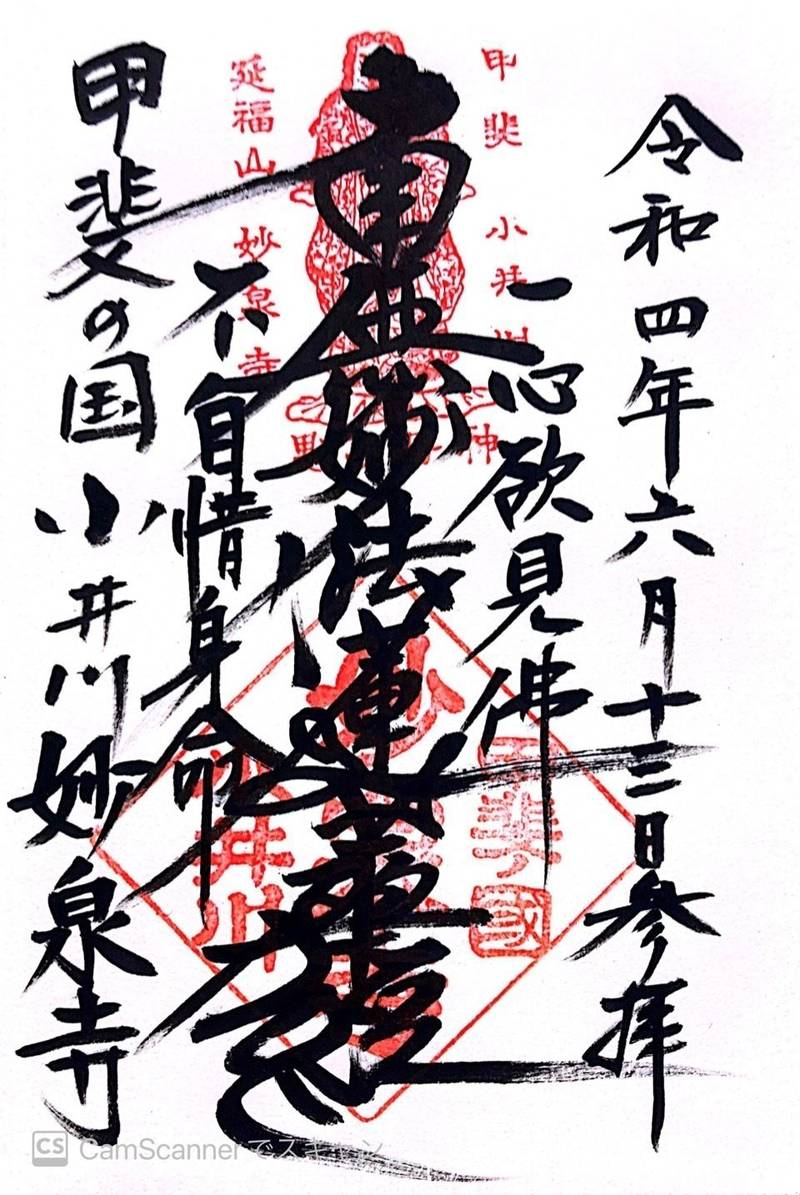 令和四年六月十三日参拝
一心欲見佛
南無妙法蓮華経
不自惜身命
甲斐の国小井川妙泉寺
甲斐 小井川
延福山 妙泉寺
甲斐國
小井川
CS CamScanner でスキャン